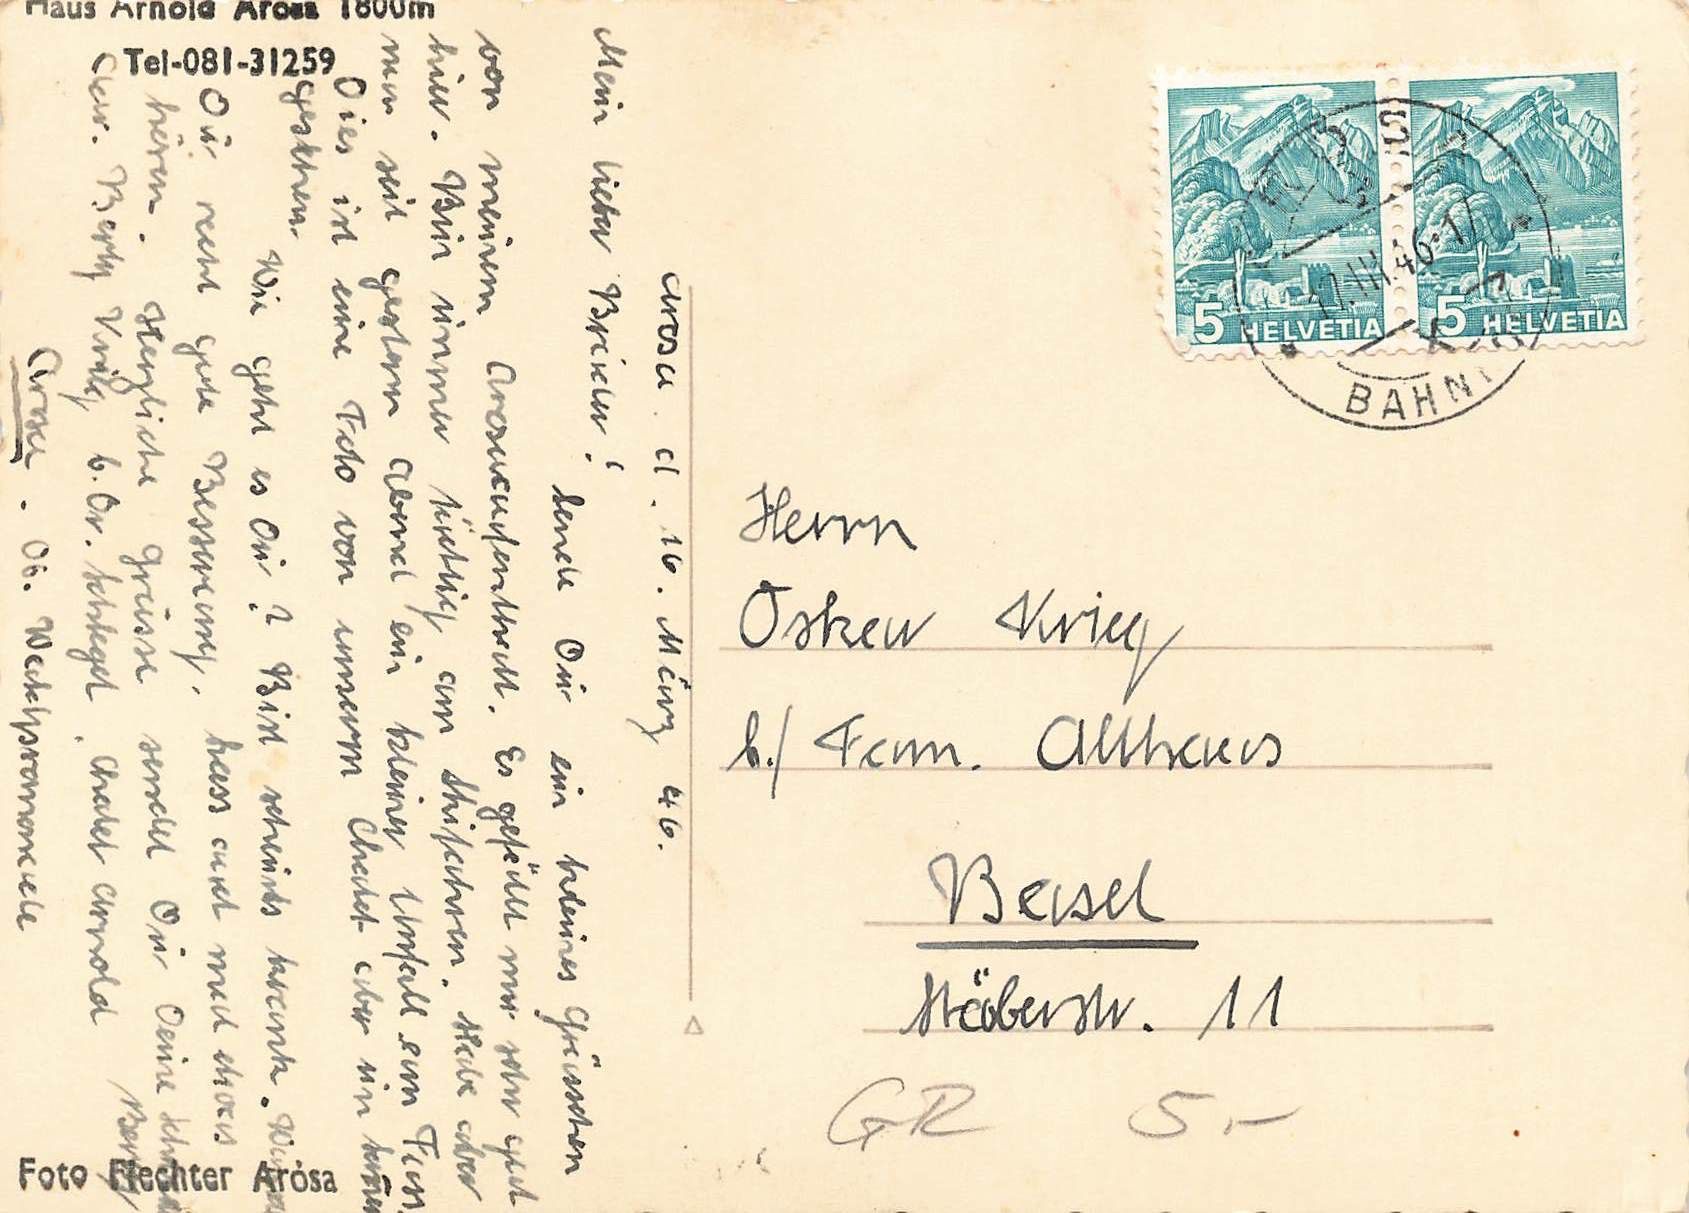 Haus Arnold Arosa 1800m
Tel-081-31259
Arosa d. 16. März 46.
Mein lieber Bruder!
Sende Dir ein kleines Grüsschen
von meinem Arosaaufenthalt. Es gefällt mir sehr gut
hier. Bin immer tüchtig am Skifahren. Habe aber
nun seit gestern abend ein kleiner Unfall am Fuss.
Dies ist eine Foto von unserm Chalet aber im
gesehen
Wie geht es Dir? Bist scheints krank. Wünsche
Dir recht gute Besserung. Lass auch mal etwas
hören. Herzliche Grüsse sendet Dir Deine
Berty
Abr. Berty Krieg b. Dr. Schlegel, Chalet Arnold
Arosa. Ob. Waldpromenade
Foto Flechter Arosa
5 HELVETIA
5 HELVETIA
AROSA
17.III.46-17
BAHNHOF
Herrn
Oskar Krieg
b./ Fam. Althaus
Basel
Stäberstr. 11
GR 5.-